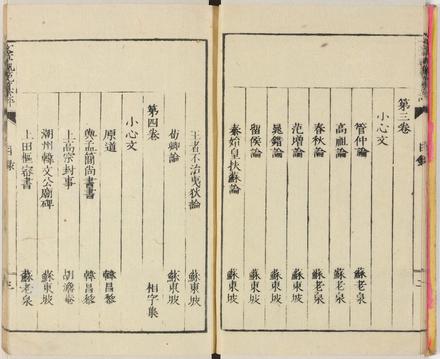 第三卷
小心文
管仲論 蘇老泉
高祖論 蘇老泉
春秋論 蘇老泉
范增論 蘇東坡
晁錯論 蘇東坡
留侯論 蘇東坡
秦始皇扶蘇論 蘇東坡
王者不治夷狄論 蘇東坡
荀卿論 蘇東坡
第四卷 相字集
小心文
原道 韓昌黎
與孟簡尚書書 韓昌黎
上高宗封事 胡澹菴
潮州韓文公廟碑 蘇東坡
上田樞密書 蘇老泉
目錄 三